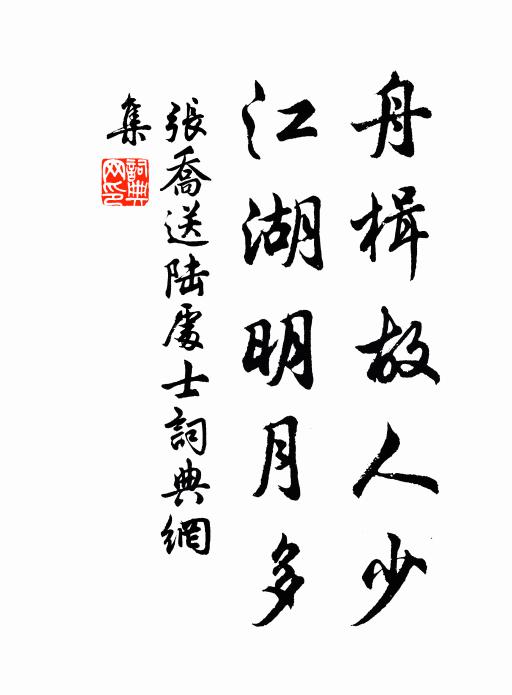 舟楫故人少
江湖明月多
張喬送陆處士詞典網
集
詞典
网印